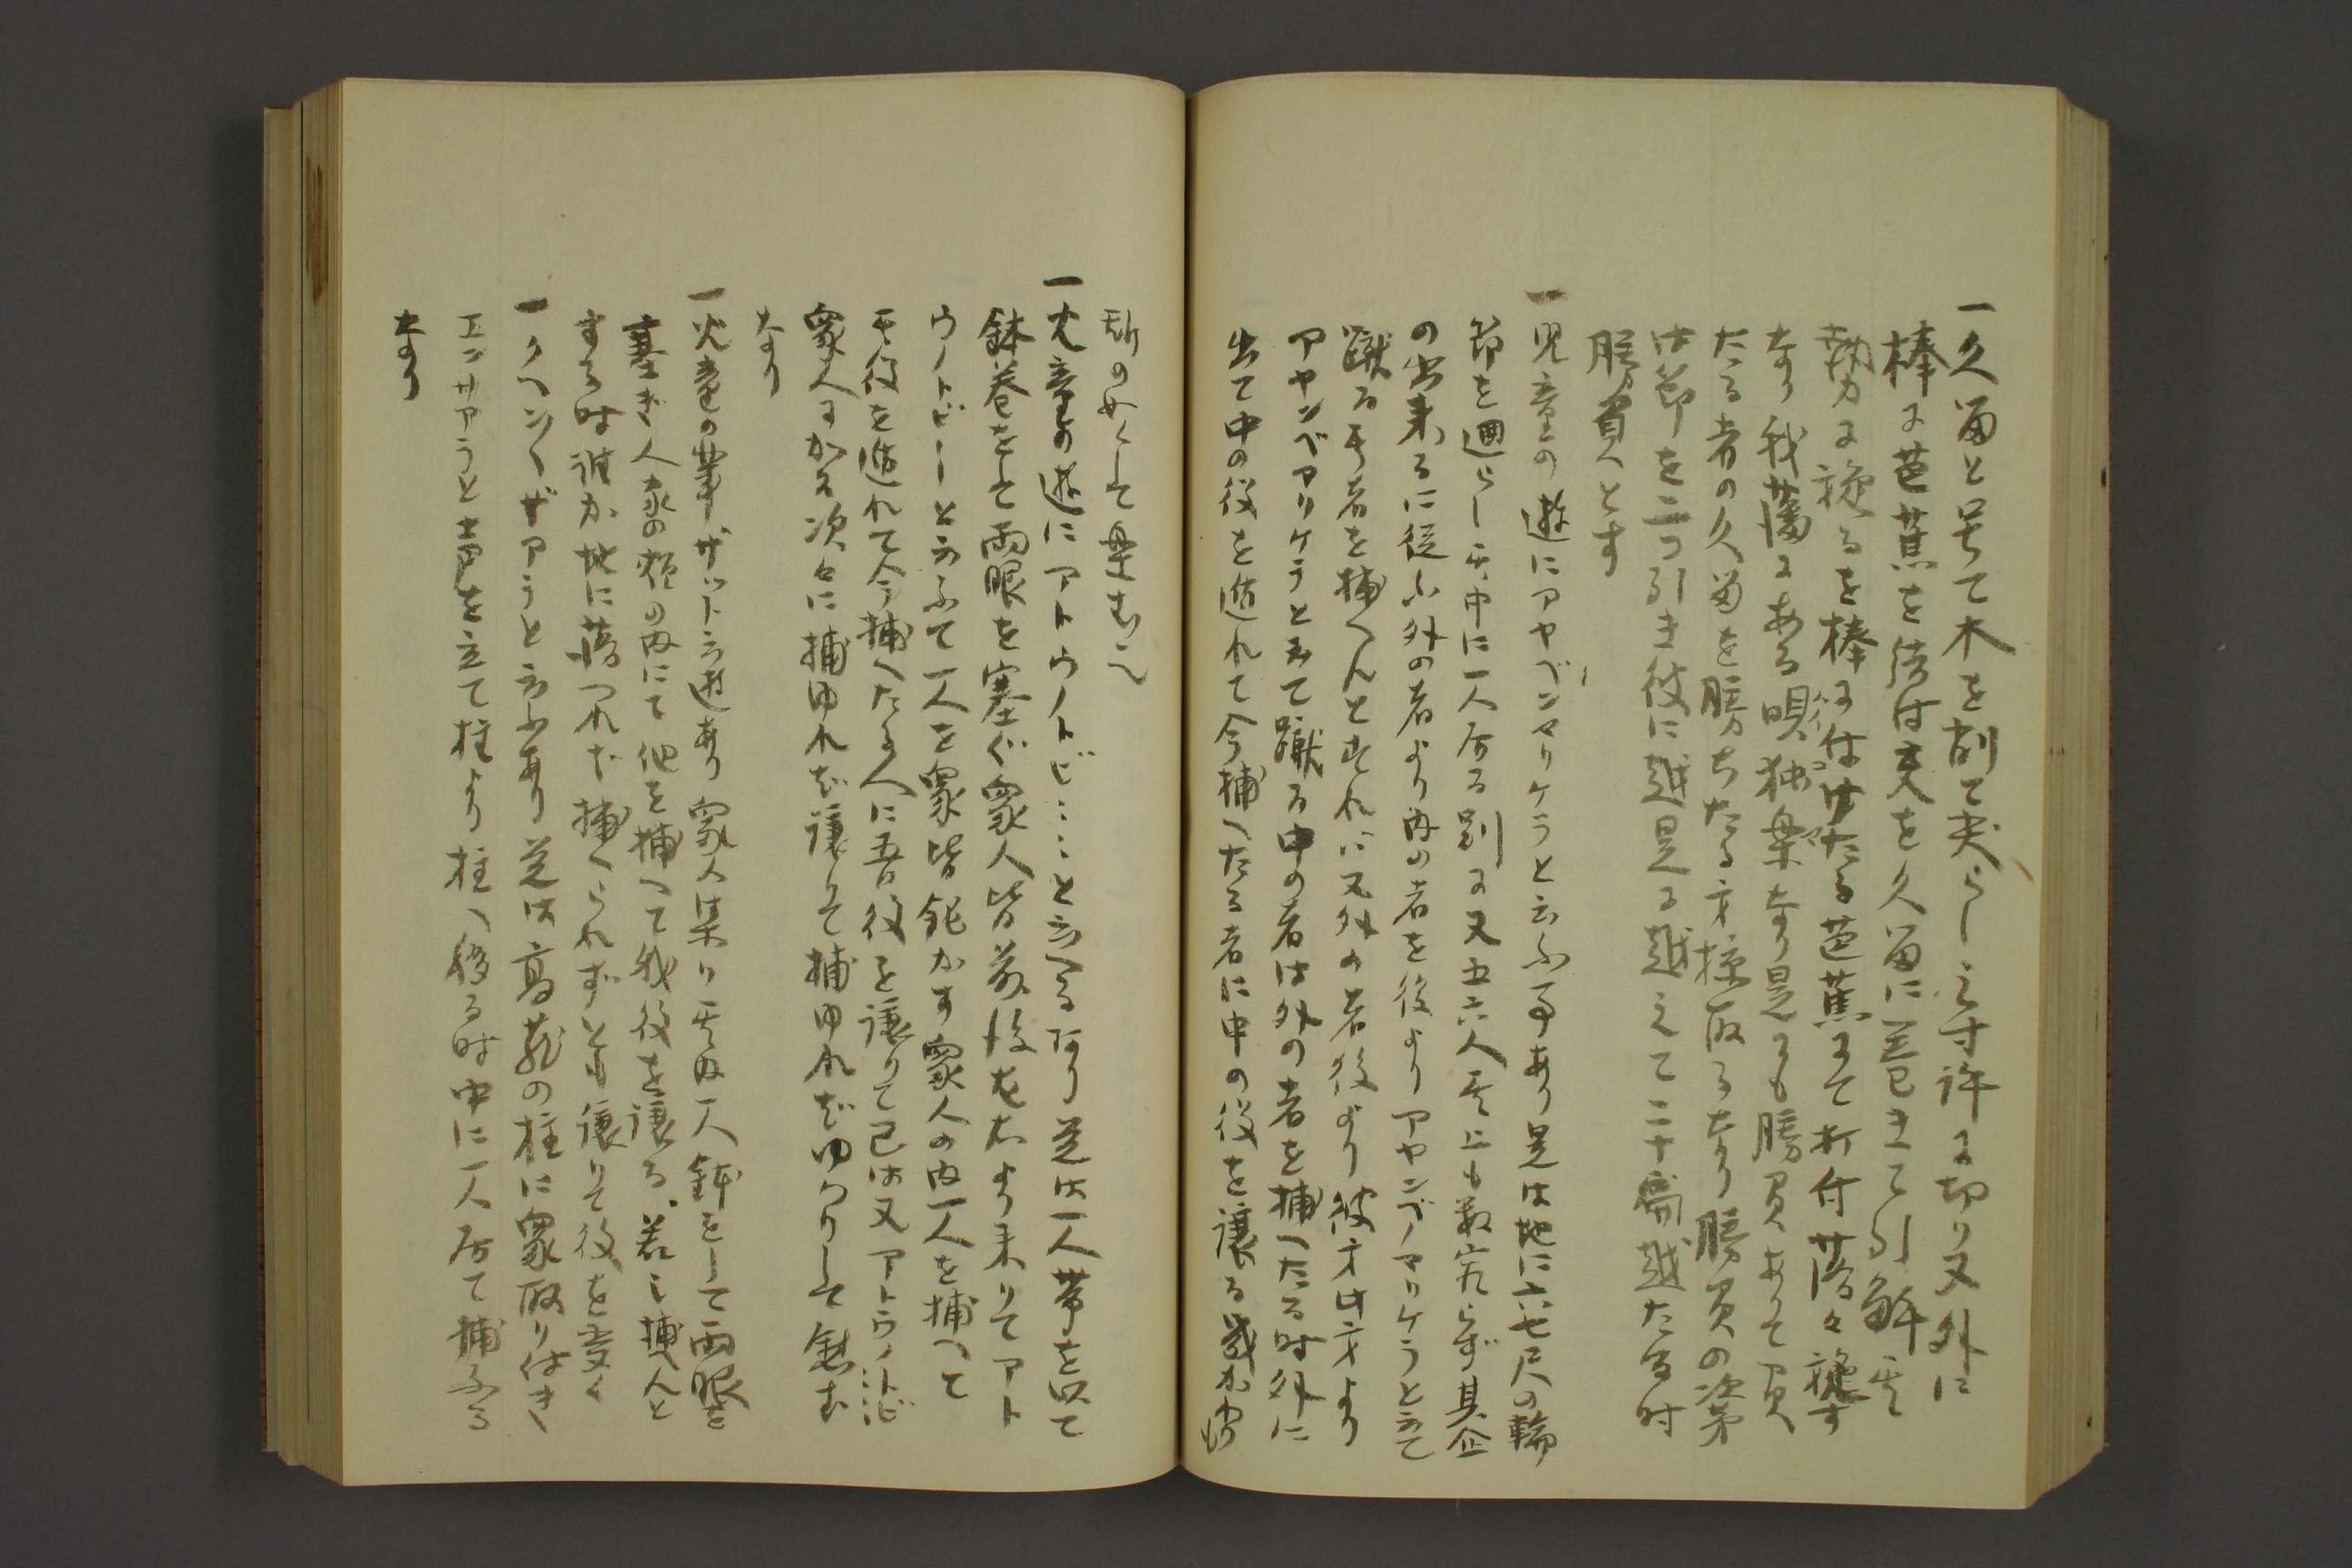 一久畄と号て木を削て尖らし三寸許に切り又外に
棒に芭蕉を結付夫を久畄に巻きて引解其
勢力に旋るを棒に付けたる芭蕉にて打付落々旋す
なり我藩にある唄独楽なり是にも勝負ありて負
たる者の久畄を勝ちたる方掠取るなり勝負の次第
は節を二つ引き彼に越是に越えて二十扁越たる時
勝負とす
一児童の遊にアヤベンマリケラと云ふ事あり是は地に六七尺の輪
節を廻らし其中に一人居る別に又五六人其上も数定らず其企
の出来るに従ふ外の者より内の者を後よりアヤンベノマリケラと云て
蹴る其者を捕へんとすれば又外の者後より彼方此方より
アヤンベアリケラと云て蹴る中の者は外の者を捕へたる時外に
出て中の役を遁れて今捕へたる者に中の役を譲る幾か
斯のめくして楽むなり
一児童の遊にアトウノトビ……と云へるあり是は一人帯を以て
鉢巻をして両眼を塞ぐ衆人皆前後左右より来りてアト
ウノトビーと云ふて一人を衆皆侘かす衆人の内一人を捕へて
其役を遁れて今捕へたる人に吾役を譲りて己は又アトウノトビ
衆人にかる次々に捕ゆれば譲りて捕ゆればゆつりして慰む
なり
一児童の業ザットと云遊あり衆人集り其内一人鉢をして両眼を
塞ぎ人家の雜の内にて他を捕へて我役を譲る若し捕んと
する時誰か地に落つれば捕へられずとも譲りて役を変く
一クヘン〱ザアラと云ふあり是は高蔵の柱に衆取り付き
エンサアラと声を立て柱より柱へ移る時中に一人居て捕ふる
なり